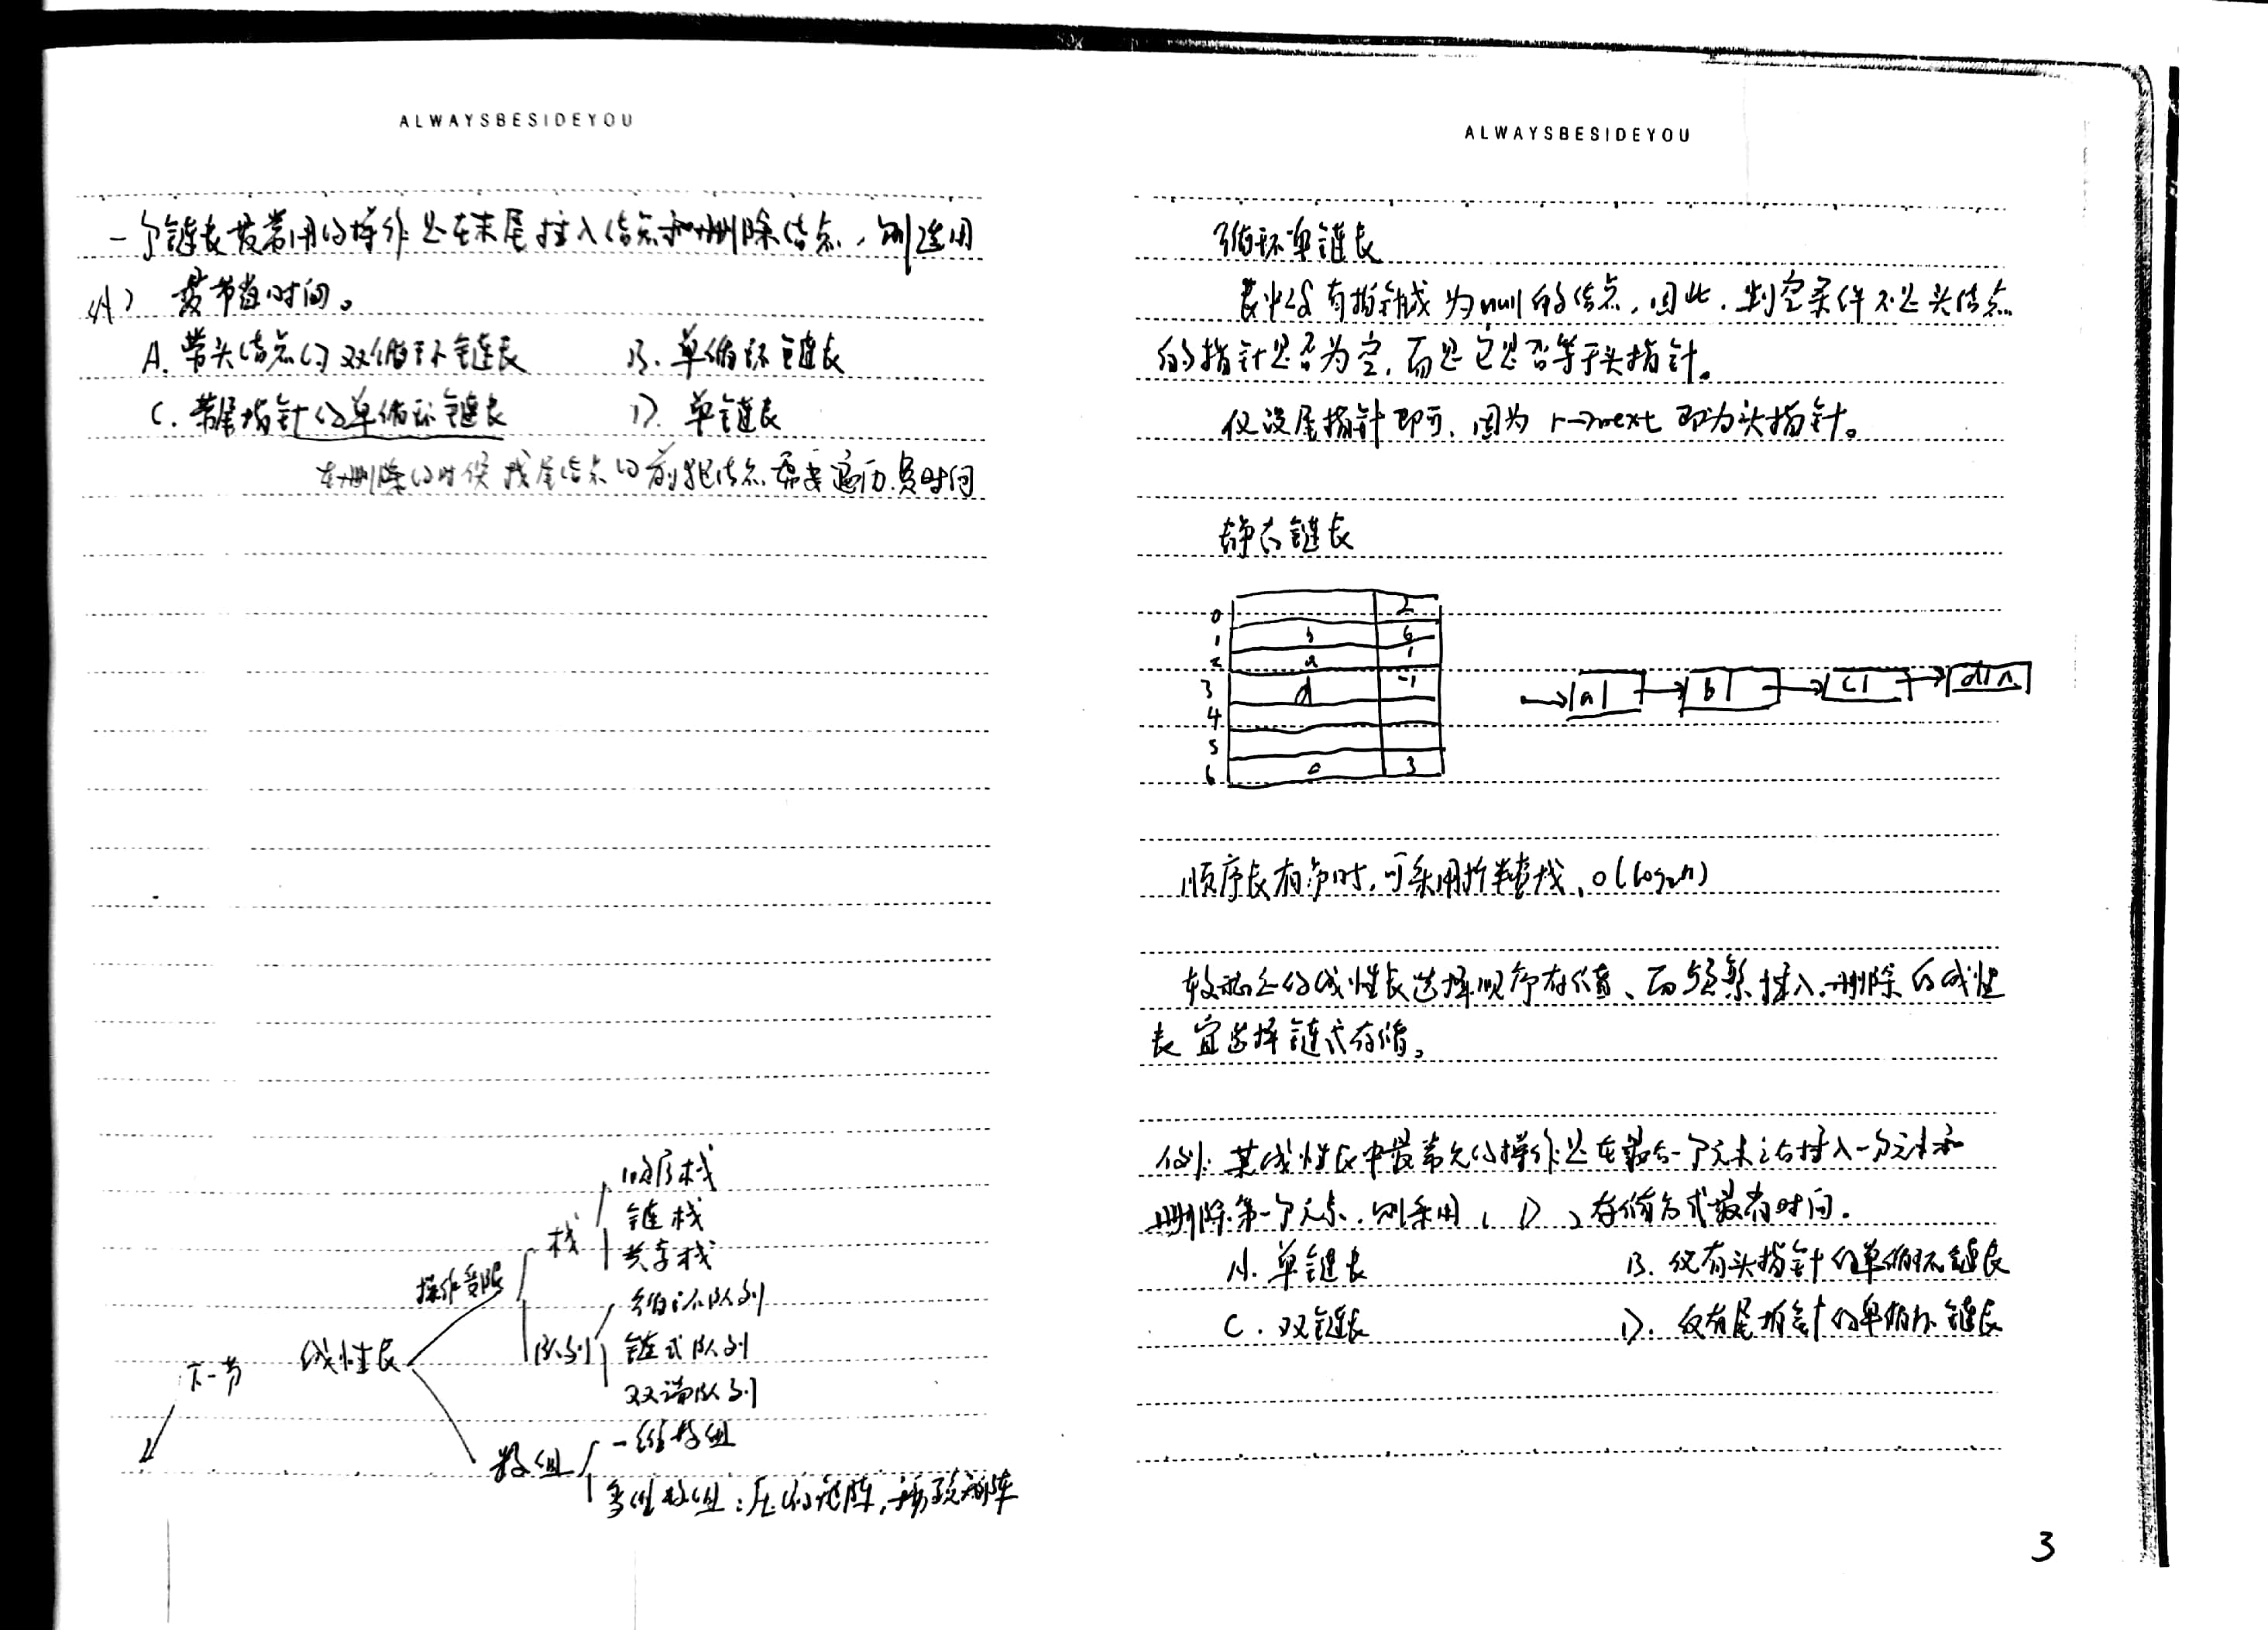 ALWAYSBESIDEYOU
一个链表最常用的操作是在末尾插入结点和删除结点,则选用
(A) 最节省时间。
A. 带头结点的双循环链表 B. 单循环链表
C. 带尾指针的单循环链表 D. 单链表
在删除的时候找尾结点的前驱结点需要遍历,费时间
顺序栈
链栈
栈
共享栈
操作受限
循环队列
队列
链式队列
双端队列
线性表
下一节
一维数组
数组
多维数组:压缩矩阵,稀疏矩阵
ALWAYSBESIDEYOU
循环单链表
表中没有指针域为null的结点,因此,判空条件不是头结点
的指针是否为空,而是它是否等于头指针。
仅设尾指针即可,因为 r→next 即为头指针。
静态链表
0 2
1 b 6
2 a 1
3 d -1
4
5
6 c 3
a b c d ∧
顺序表有序时,可采用折半查找,O(log₂n)
较稳定的线性表选择顺序存储、而频繁插入、删除的线性
表宜选择链式存储。
例:某线性表中最常见的操作是在最后一个元素之后插入一个元素和
删除第一个元素,则采用(D)存储方式最省时间.
A. 单链表 B. 仅有头指针的单循环链表
C. 双链表 D. 仅有尾指针的单循环链表
3